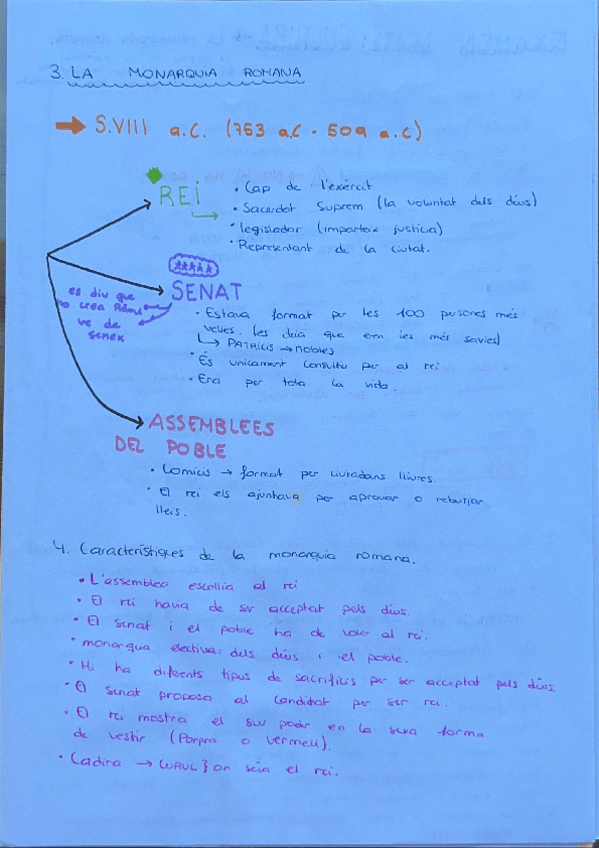 3. LA MONARQUIA ROMANA
S.VIII a.C. (753 a.C - 509 a.C)
REI
• Cap de l'exèrcit
• Sacerdot Suprem (la voluntat dels déus)
• legislador (imparteix justícia)
• Representant de la ciutat.
SENAT
es diu que
ho crea Ròmul
ve de
senex
• Estava format per les 100 persones més
velles. (es deia que eren les més savies)
PATRICIS → nobles
• És unicament consultiu per al rei
• Era per tota la vida.
ASSEMBLEES
DEL POBLE
• Comicis → format per ciutadans lliures.
• El rei els ajuntava per aprovar o rebutjar
lleis.
4. Característiques de la monarquia romana.
• L'assemblea escollia al rei
• El rei havia de ser acceptat pels déus.
• El senat i el poble ha de voler al rei.
• monarqua electiva: dels déus i el poble.
• Hi ha diferents tipus de sacrificis per ser acceptat pels déus
• El senat proposa al candidat per ser rei.
• El rei mostra el seu poder en la seva forma
de vestir (Porpra o vermell).
• Cadira → } on seia el rei.